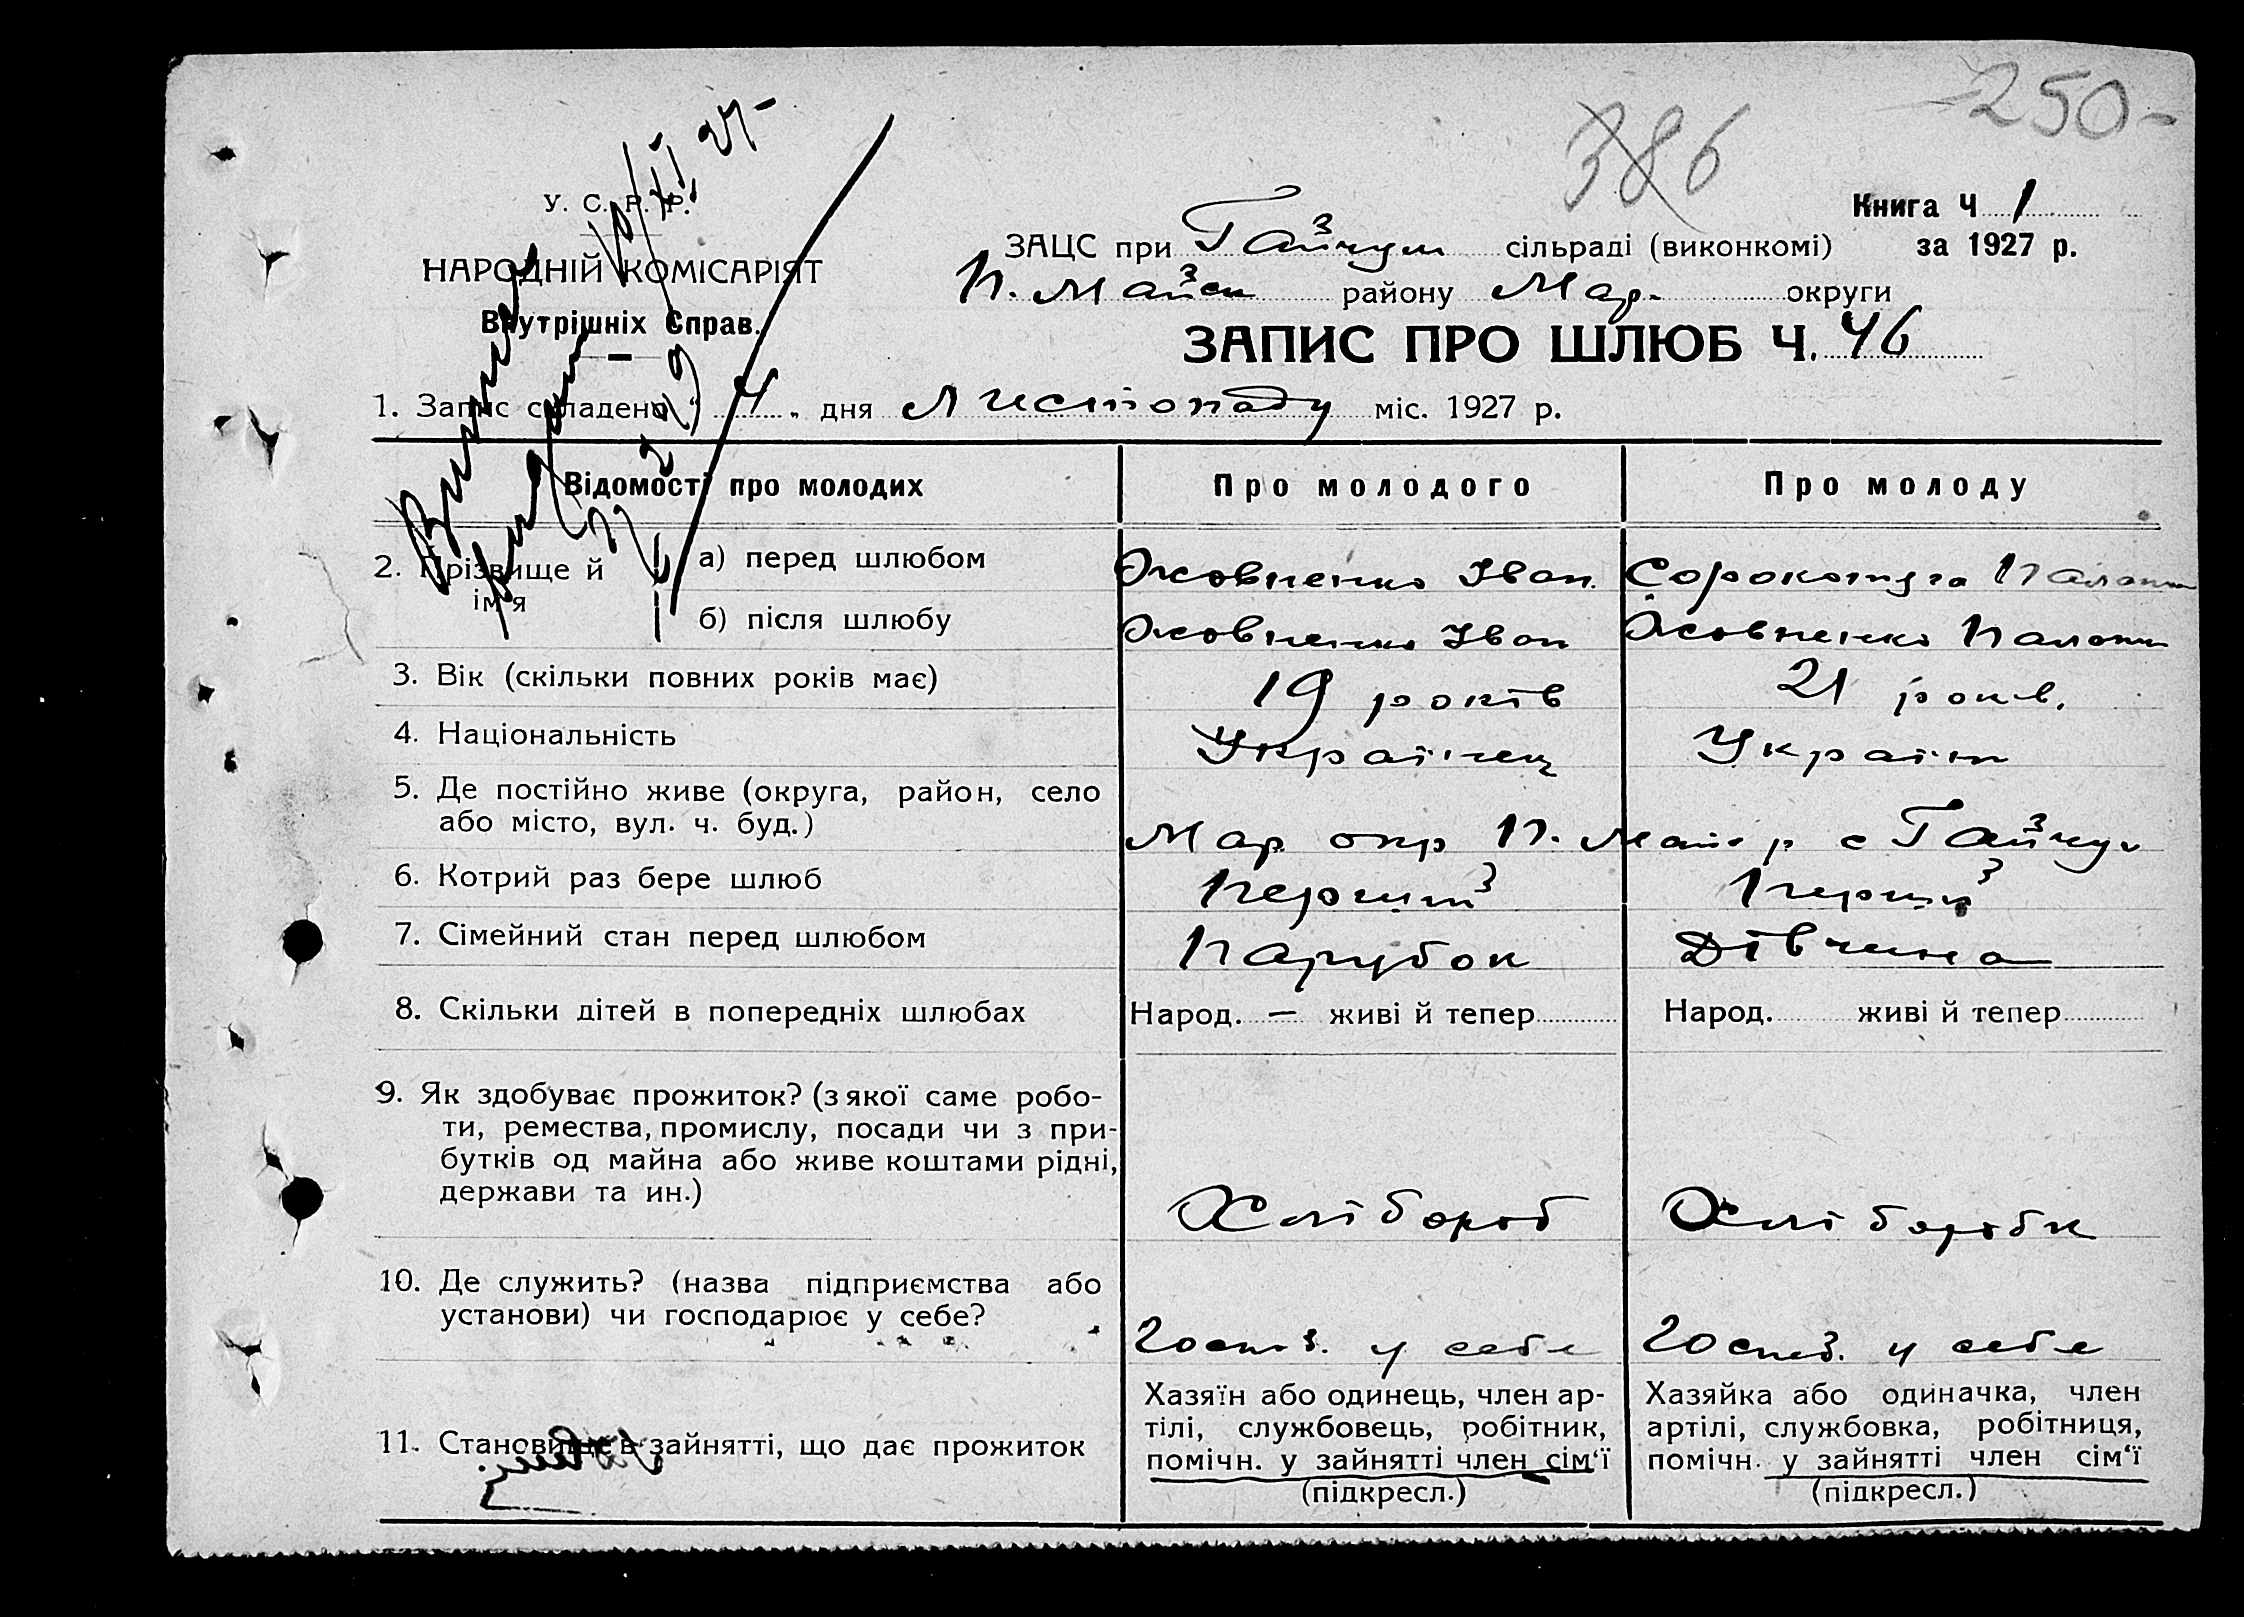 386 250-
У. С. Р. Р.
НАРОДНІЙ КОМІСАРІЯТ
Внутрішніх Справ.
Книга Ч 1
ЗАЦС при Гайчул сільраді (виконкомі) за 1927 р.
П. Майськ району Мар. округи
ЗАПИС ПРО ШЛЮБ Ч. 46
1. Запис складено „ 4 „ дня Листопаду міс. 1927 р.
Відомості про молодих Про молодого Про молоду
2. Прізвище й ім'я а) перед шлюбом Жовненко Іван. Сорокотяга
б) після шлюбу Жовненко Іван Жовненко
3. Вік (скільки повних років має) 19 років 21 років.
4. Національність Українец Україн
5. Де постійно живе (округа, район, село
або місто, вул. ч. буд.) Мар. окр П. Май р с Гайчул
6. Котрий раз бере шлюб Перший Перший
7. Сімейний стан перед шлюбом Парубок Дівчина
8. Скільки дітей в попередніх шлюбах Народ. — живі й тепер Народ. живі й тепер
9. Як здобуває прожиток? (з якої саме робо-
ти, ремества, промислу, посади чи з при-
бутків од майна або живе коштами рідні,
держави та ин.) Хлібороб Хліборобк
10. Де служить? (назва підприємства або
установи) чи господарює у себе? у себе у себе
11. Становище в зайнятті, що дає прожиток
Хазяїн або одинець, член ар-
тілі, службовець, робітник,
помічн. у зайнятті член сім'ї
(підкресл.)
Хазяйка або одиначка, член
артілі, службовка, робітниця,
помічн. у зайнятті член сім'ї
(підкресл.)